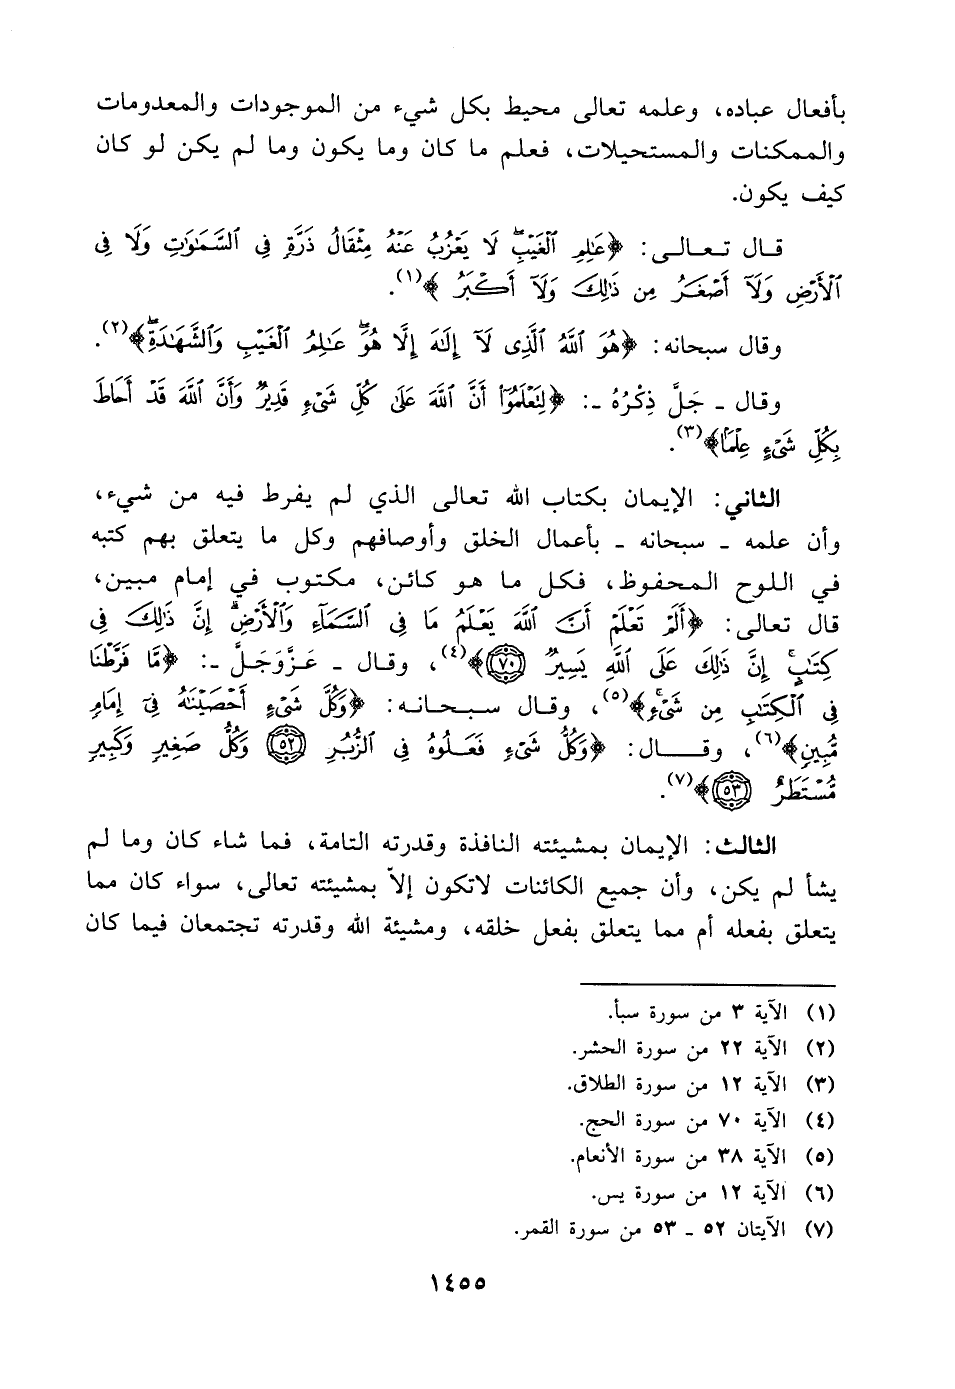 بأفعال عباده، وعلمه تعالى محيط بكل شيء من الموجودات والمعدومات
والممكنات والمستحيلات، فعلم ما كان وما يكون وما لم يكن لو كان
كيف يكون.
قال تعالى: ﴿عَـٰلِمِ ٱلْغَيْبِ ۖ لَا يَعْزُبُ عَنْهُ مِثْقَالُ ذَرَّةٍ فِى ٱلسَّمَـٰوَٰتِ وَلَا فِى
ٱلْأَرْضِ وَلَآ أَصْغَرُ مِن ذَٰلِكَ وَلَآ أَكْبَرُ﴾(١).
وقال سبحانه: ﴿هُوَ ٱللَّهُ ٱلَّذِى لَآ إِلَـٰهَ إِلَّا هُوَ ۖ عَـٰلِمُ ٱلْغَيْبِ وَٱلشَّهَـٰدَةِ ۖ﴾(٢).
وقال ـ جَلَّ ذِكْرُهُ ـ: ﴿لِتَعْلَمُوٓا۟ أَنَّ ٱللَّهَ عَلَىٰ كُلِّ شَىْءٍ قَدِيرٌ وَأَنَّ ٱللَّهَ قَدْ أَحَاطَ
بِكُلِّ شَىْءٍ عِلْمًۢا﴾(٣).
الثاني: الإيمان بكتاب الله تعالى الذي لم يفرط فيه من شيء،
وأن علمه ـ سبحانه ـ بأعمال الخلق وأوصافهم وكل ما يتعلق بهم كتبه
في اللوح المحفوظ، فكل ما هو كائن، مكتوب في إمام مبين،
قال تعالى: ﴿أَلَمْ تَعْلَمْ أَنَّ ٱللَّهَ يَعْلَمُ مَا فِى ٱلسَّمَآءِ وَٱلْأَرْضِ ۗ إِنَّ ذَٰلِكَ فِى
كِتَـٰبٍ ۚ إِنَّ ذَٰلِكَ عَلَى ٱللَّهِ يَسِيرٌ ٧٠﴾(٤)، وقال ـ عَزَّوَجَلَّ ـ: ﴿مَّا فَرَّطْنَا
فِى ٱلْكِتَـٰبِ مِن شَىْءٍ ۚ﴾(٥)، وقال سبحانه: ﴿وَكُلَّ شَىْءٍ أَحْصَيْنَـٰهُ فِىٓ إِمَامٍ
مُّبِينٍ﴾(٦)، وقال: ﴿وَكُلُّ شَىْءٍ فَعَلُوهُ فِى ٱلزُّبُرِ ٥٢ وَكُلُّ صَغِيرٍ وَكَبِيرٍ
مُّسْتَطَرٌ ٥٣﴾(٧).
الثالث: الإيمان بمشيئته النافذة وقدرته التامة، فما شاء كان وما لم
يشأ لم يكن، وأن جميع الكائنات لاتكون إلاّ بمشيئته تعالى، سواء كان مما
يتعلق بفعله أم مما يتعلق بفعل خلقه، ومشيئة الله وقدرته تجتمعان فيما كان
(١) الآية ٣ من سورة سبأ.
(٢) الآية ٢٢ من سورة الحشر.
(٣) الآية ١٢ من سورة الطلاق.
(٤) الآية ٧٠ من سورة الحج.
(٥) الآية ٣٨ من سورة الأنعام.
(٦) الآية ١٢ من سورة يس.
(٧) الآيتان ٥٢ ـ ٥٣ من سورة القمر.
١٤٥٥